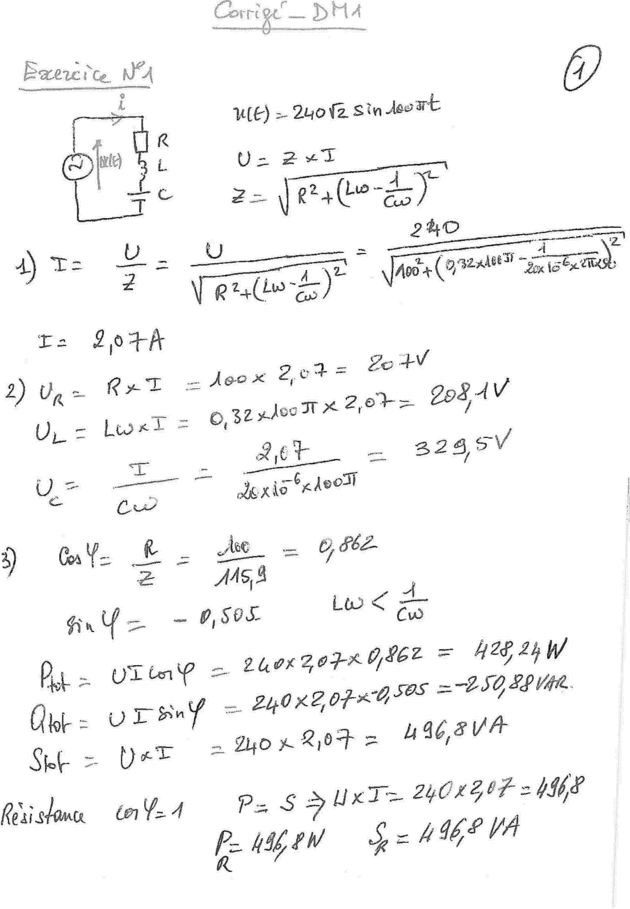 Corrigé - DM1
Exercice N°1
1
i
u(t)
R
L
C
u(t) = 240√2 sin 100πt
U = Z × I
Z = √(R² + (Lω - 1/Cω)²)
1) I = U/Z = U/√(R² + (Lω - 1/Cω)²) = 240/√(100² + (0,32×100π - 1/(20×10⁻⁶×2π×50))²)
I = 2,07A
2) U_R = R×I = 100 × 2,07 = 207V
U_L = Lω×I = 0,32×100π×2,07 = 208,1V
U_C = I/Cω = 2,07/(20×10⁻⁶×100π) = 329,5V
3) Cos φ = R/Z = 100/115,9 = 0,862
sin φ = - 0,505 Lω < 1/Cω
Ptot = UI cos φ = 240×2,07×0,862 = 428,24W
Qtot = UI sin φ = 240×2,07×-0,505 = -250,88VAR.
Stot = U×I = 240 × 2,07 = 496,8VA
Résistance cos φ = 1 P = S ⇒ U×I = 240×2,07 = 496,8
P_R = 496,8W S_R = 496,8 VA